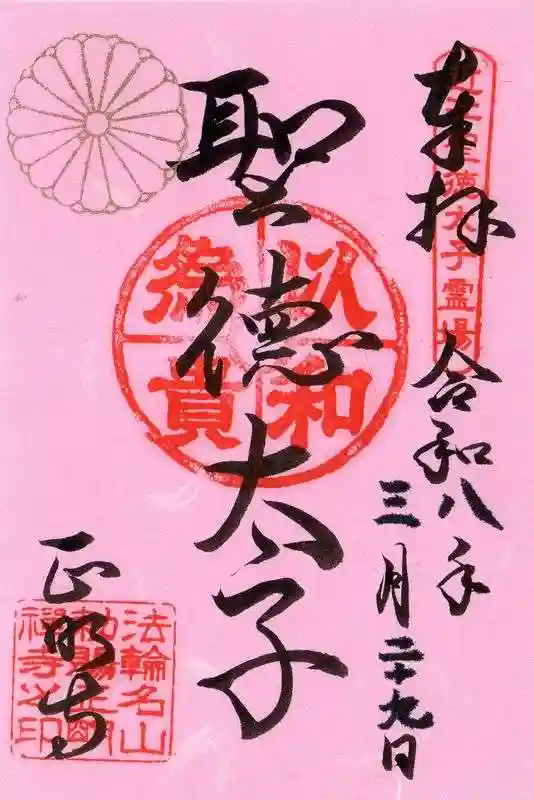 奉拝
令和八年
三月二十九日
近江聖徳太子霊場
聖徳太子
以和為貴
正明寺
法輪名山
勅賜正明
禅寺之印